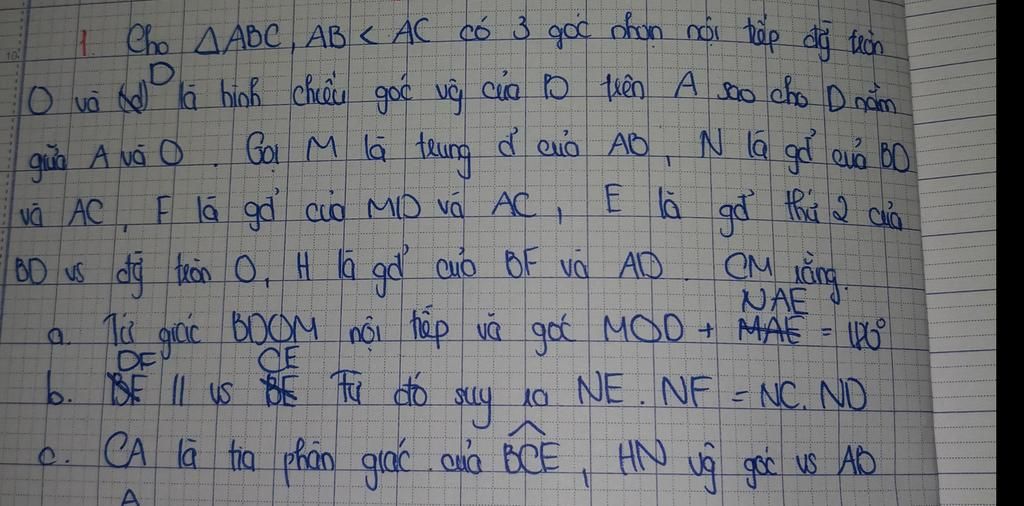 1. Cho △ABC, AB < AC có 3 góc nhọn nội tiếp đg tròn
O và D là hình chiếu góc vg của B trên A sao cho D nằm
giữa A và O. Gọi M là trung đ của AB, N là gđ của BD
và AC, F là gđ của MD và AC, E là gđ thứ 2 của
BD vs đg tròn O, H là gđ của BF và AD. CM rằng.
NAE
a. Tứ giác BDOM nội tiếp và góc MOD + MAE = 180°
DF CE
b. BF // vs BE Từ đó suy ra NE. NF = NC. ND
c. CA là tia phân giác của BCE, HN vg góc vs AB
A